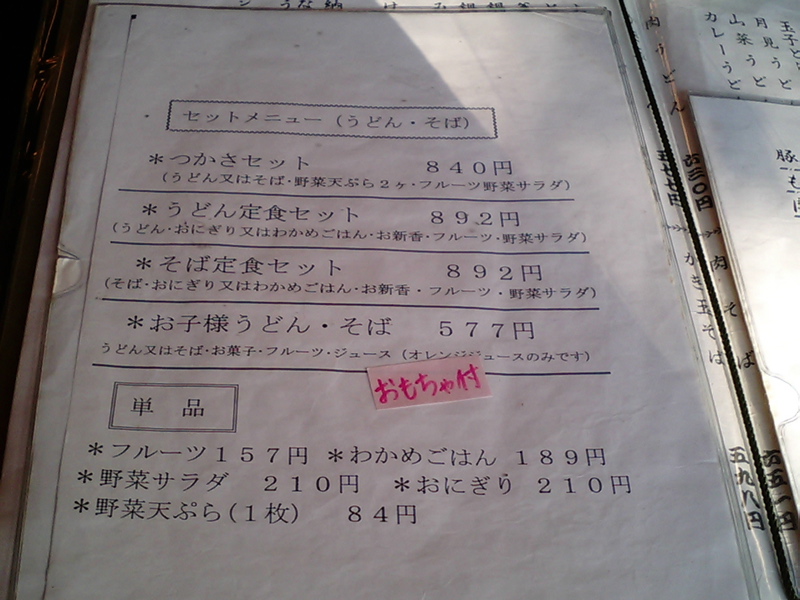 セットメニュー（うどん・そば）
＊つかさセット　８４０円
（うどん又はそば・野菜天ぷら２ヶ・フルーツ野菜サラダ）
＊うどん定食セット　８９２円
（うどん・おにぎり又はわかめごはん・お新香・フルーツ・野菜サラダ）
＊そば定食セット　８９２円
（そば・おにぎり又はわかめごはん・お新香・フルーツ・野菜サラダ）
＊お子様うどん・そば　５７７円
うどん又はそば・お菓子・フルーツ・ジュース（オレンジジュースのみです）
おもちゃ付
単品
＊フルーツ１５７円　＊わかめごはん　１８９円
＊野菜サラダ　２１０円　＊おにぎり　２１０円
＊野菜天ぷら（１枚）　８４円
カレーうどん
山菜うどん
月見うど
玉子と
肉うどん
六三〇円
五七七円
肉そば
かき玉そば
六五一円
五九八円
豚
も